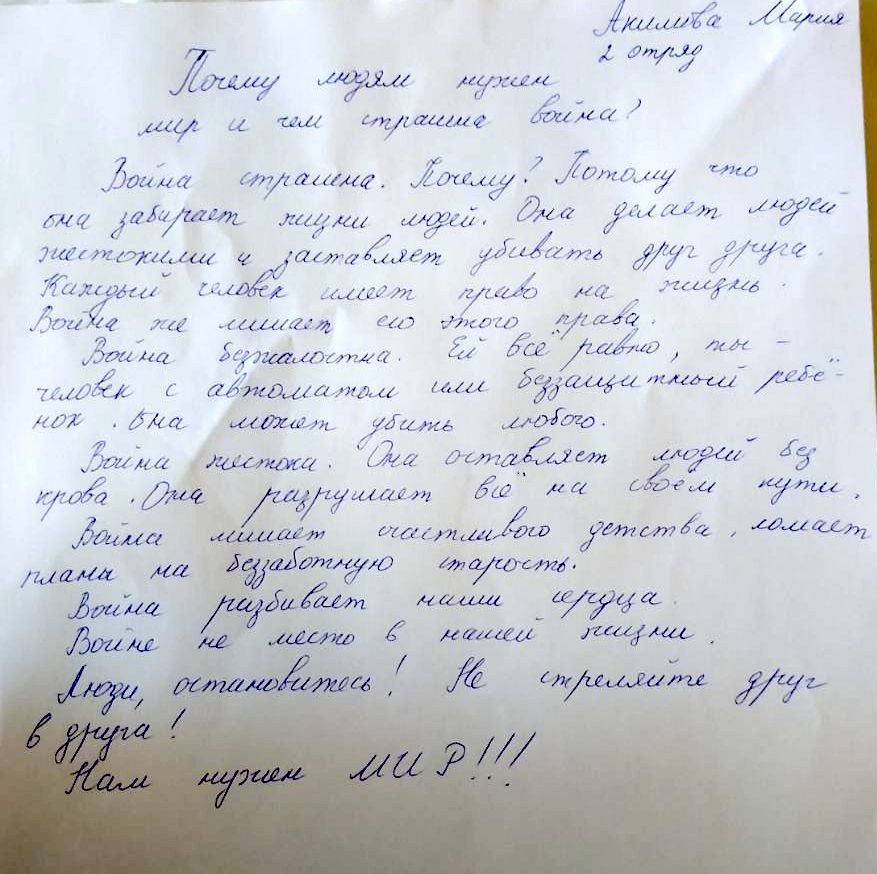 Акилива Мария
2 отряд
Почему людям нужен
мир и чем страшна война?
Война страшна. Почему? Потому что
она забирает жизни людей. Она делает людей
жестокими и заставляет убивать друг друга.
Каждый человек имеет право на жизнь.
Война же лишает его этого права.
Война безжалостна. Ей всё равно, ты –
человек с автоматом или беззащитный ребё-
нок. Она может убить любого.
Война жестока. Она оставляет людей без
крова. Она разрушает всё на своём пути.
Война лишает счастливого детства, ломает
планы на беззаботную старость.
Война разбивает наши сердца.
Войне не место в нашей жизни.
Люди, остановитесь! Не стреляйте друг
в друга!
Нам нужен МИР!!!